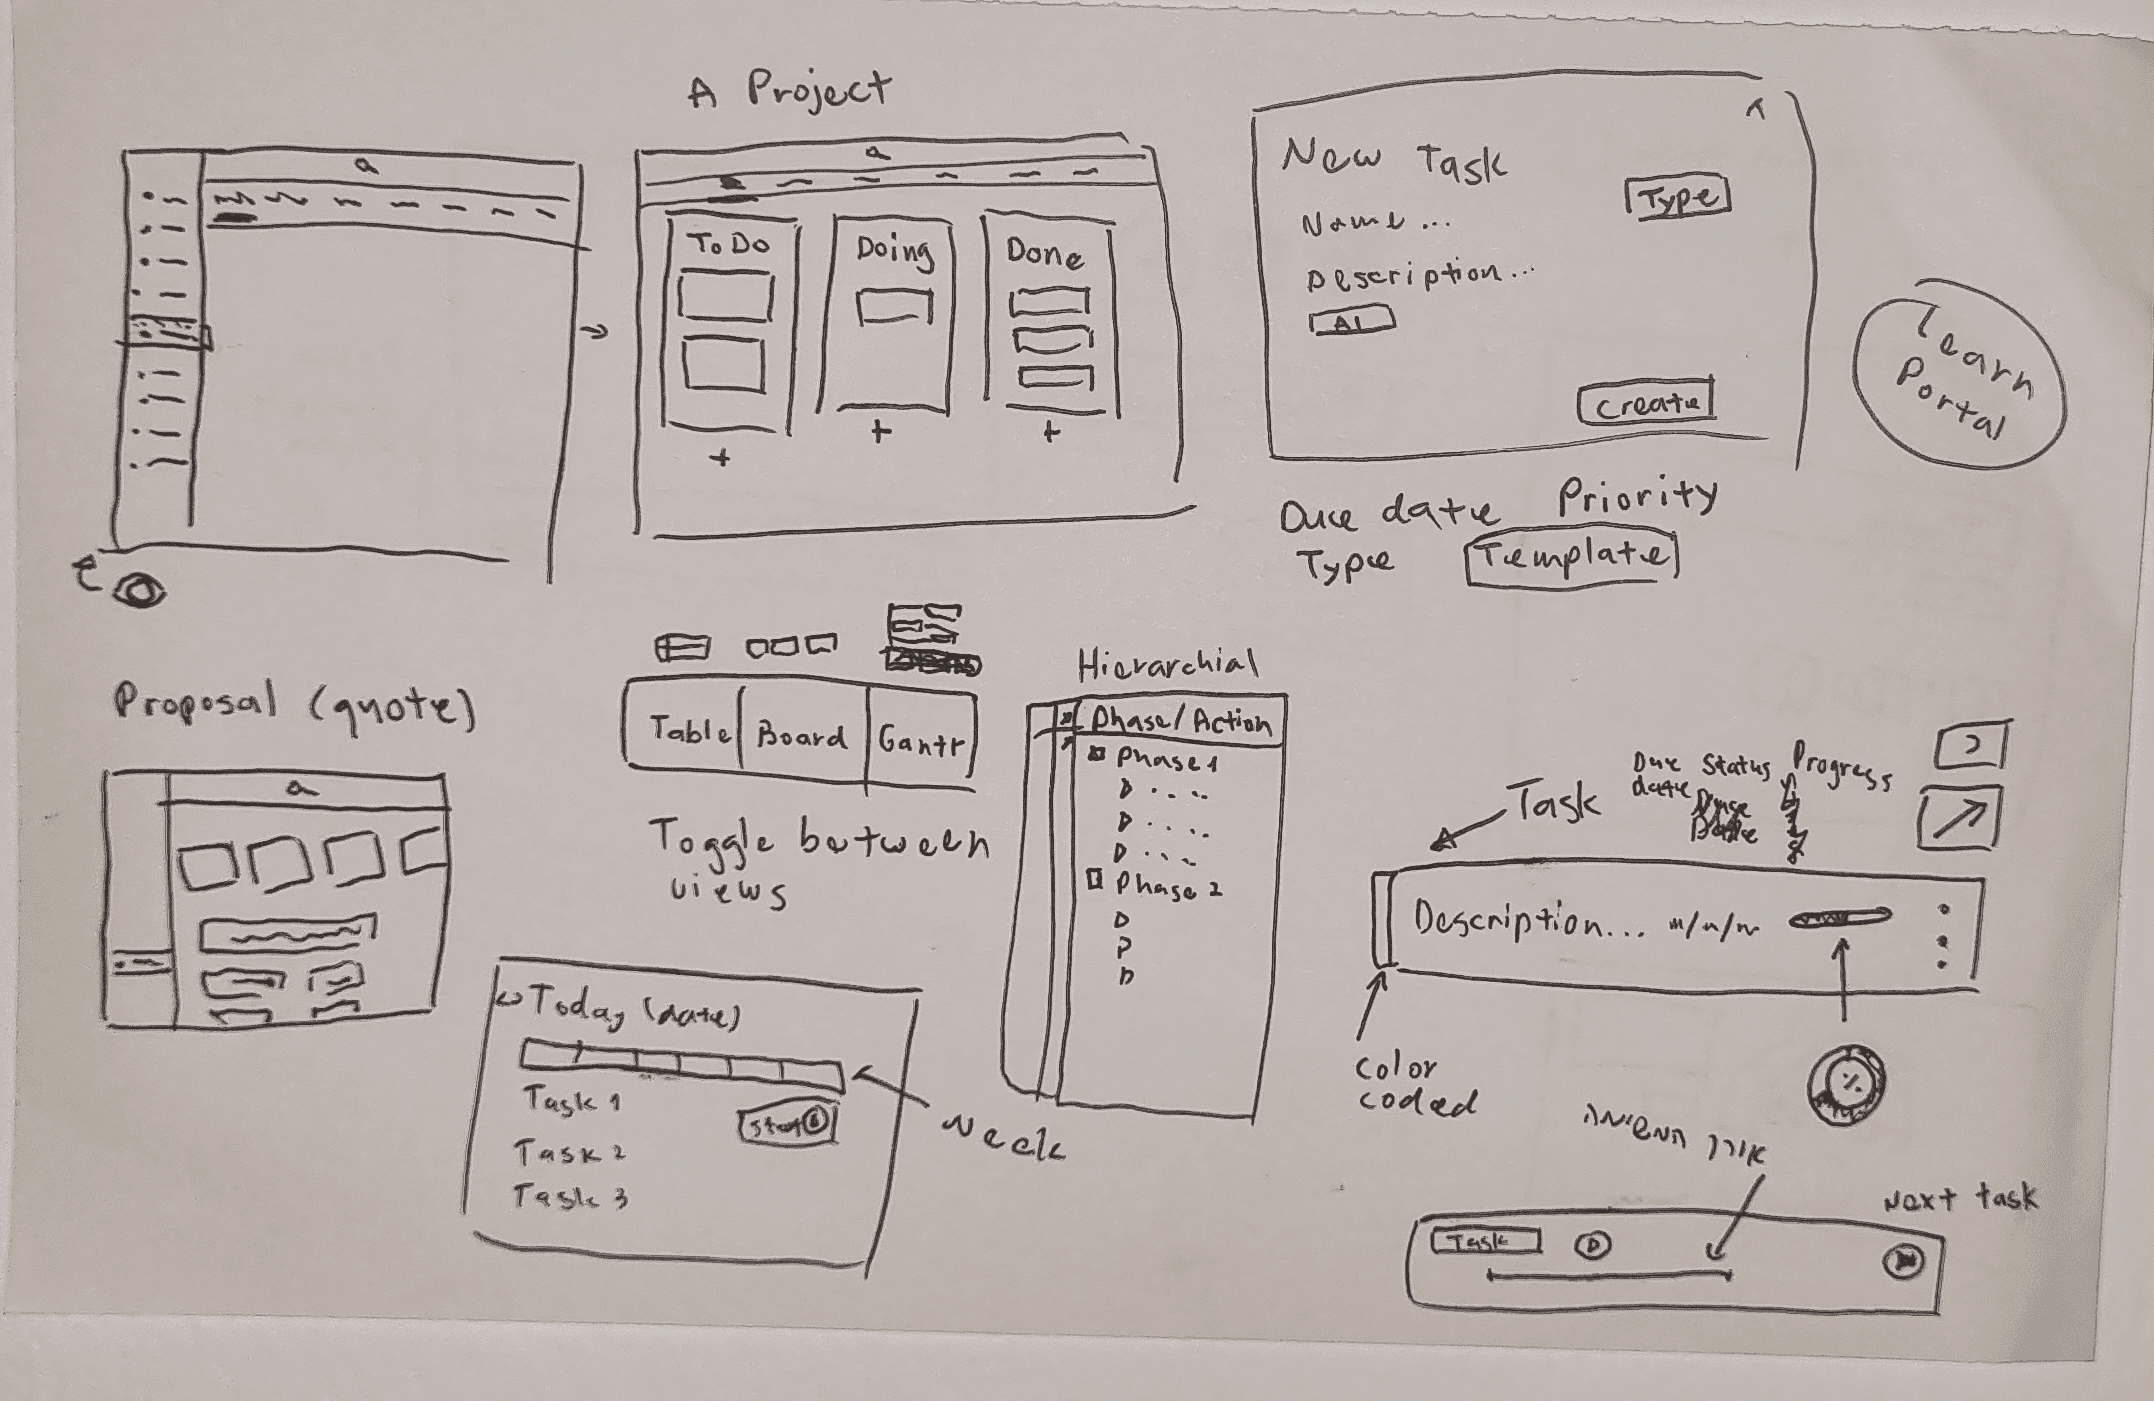 A Project
To Do
Doing
Done
+
+
+
New Task
Type
Name...
Description...
AI
Create
Due date Priority
Type Template
Learn
Portal
Proposal (quote)
Table Board Gantt
Toggle between
views
Hierarchial
Phase/Action
Phase 1
Phase 2
Today (date)
Task 1
Start
Task 2
Task 3
Week
Task
Due Status Progress
date
Description...
%
color
coded
Next task
Task